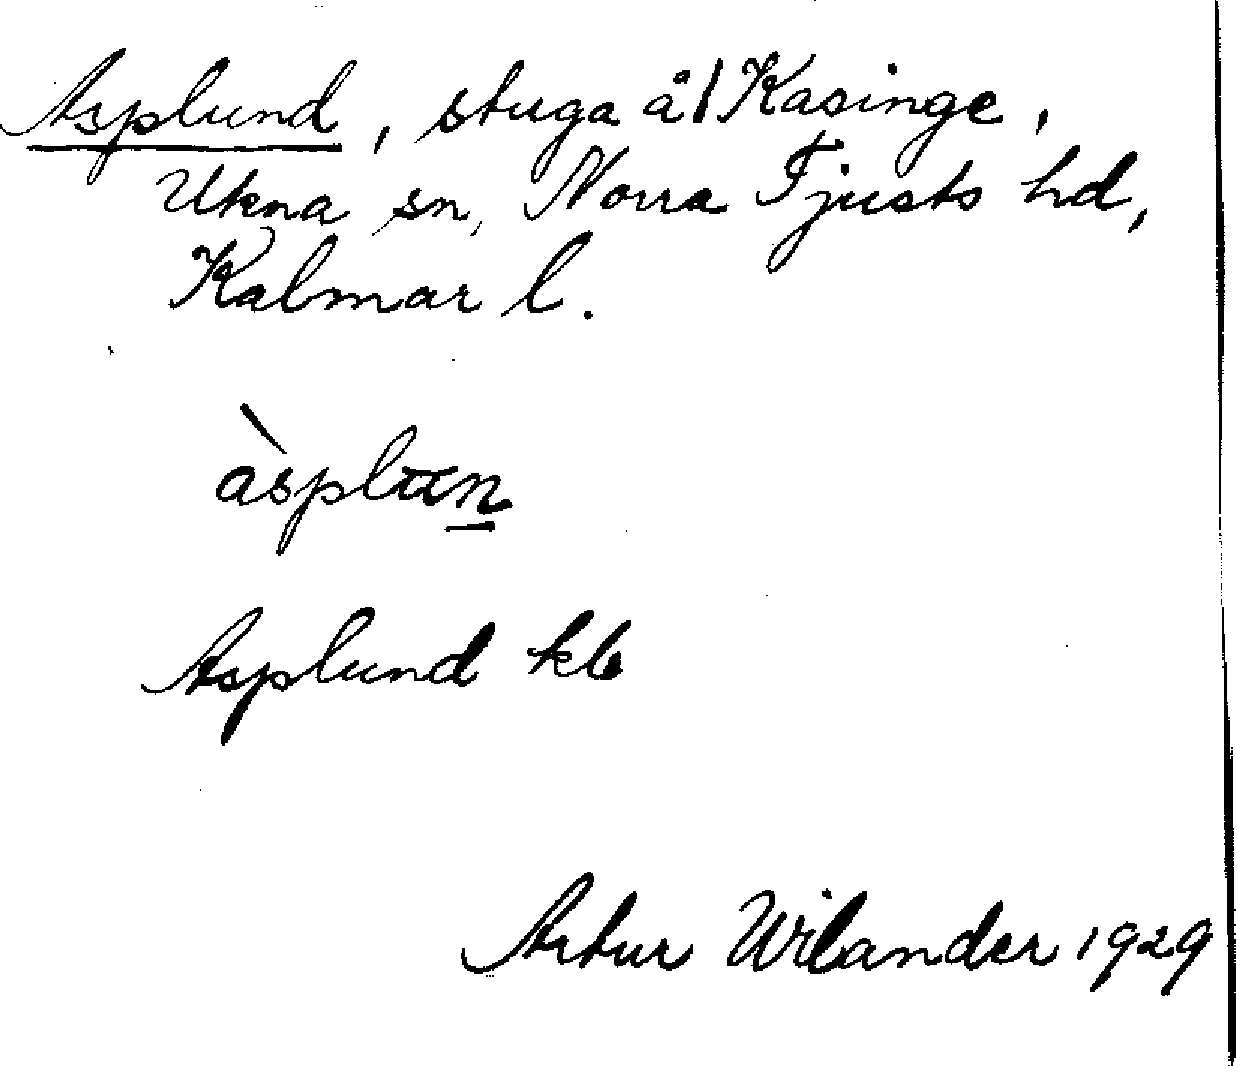 Asplund, stuga å Kasinge,
Ukna sn, Norra Tjusts hd,
Kalmar l.
Asplund kb
Artur Wilander 1929